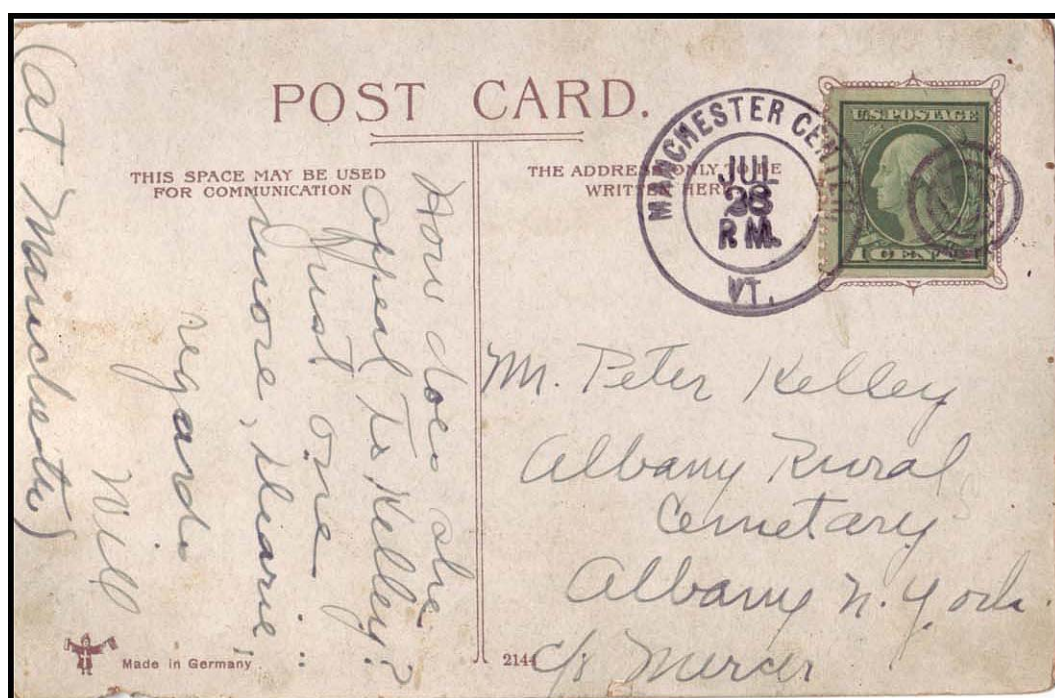 POST CARD.
THIS SPACE MAY BE USED
FOR COMMUNICATION
THE ADDRESS ONLY TO BE
WRITTEN HERE
MANCHESTER CENTER
JUL
28
P.M.
VT.
U.S. POSTAGE
1 CENT
How does she
appeal To Kelley?
Just one
more,
regards
Will
(at Manchester)
Mr. Peter Kelley
Albany Rural
Cemetary
Albany N. York
c/o Mercer
Made in Germany
2144